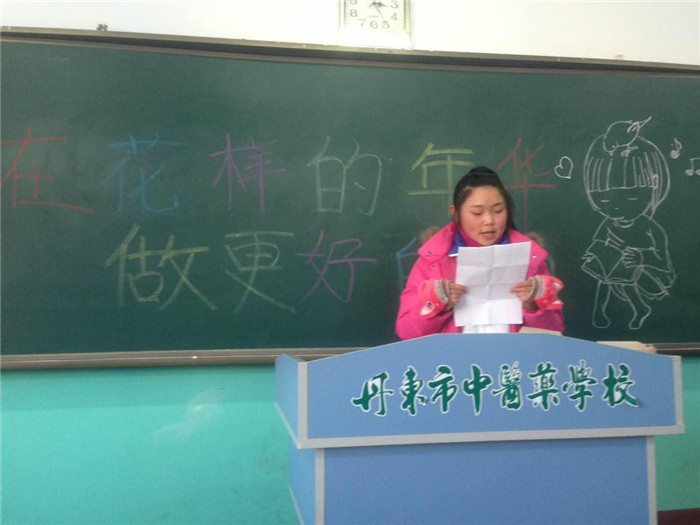 在花样的年华
做更好的
丹東市中醫藥学校